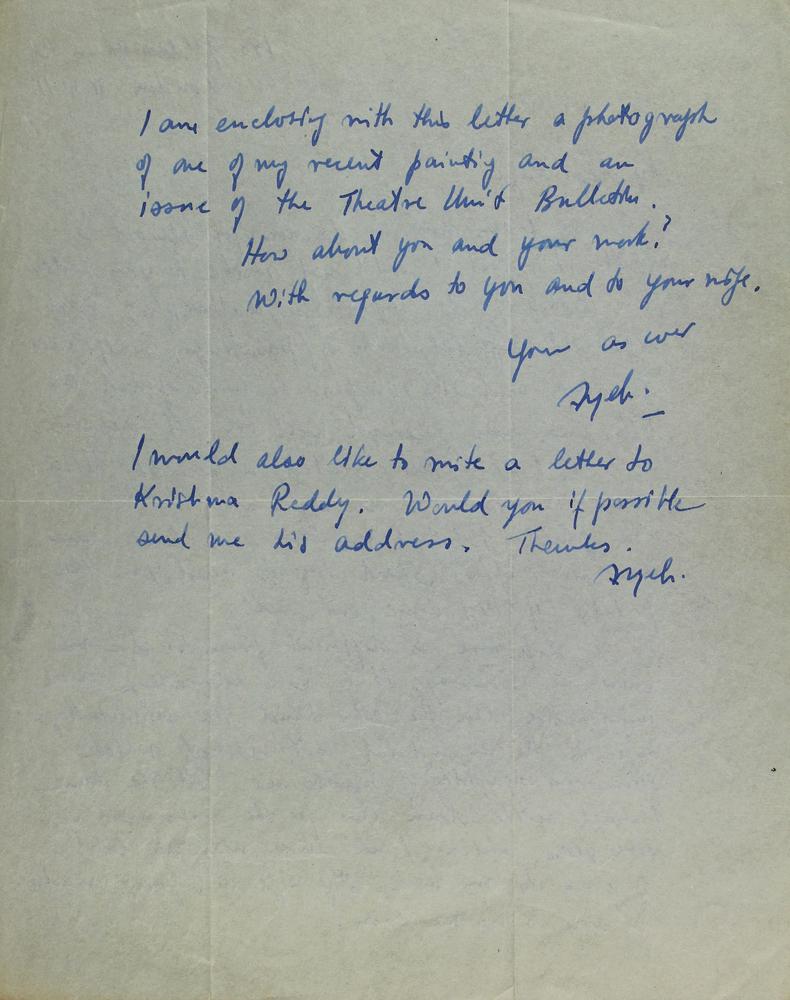 I am enclosing with this letter a photograph
of one of my recent painting and an
issue of the Theatre Unit Bulletin.
How about you and your work?
With regards to you and to your wife.
Your as ever
I would also like to write a letter to
Krishna Reddy. Would you if possible
send me his address. Thanks.